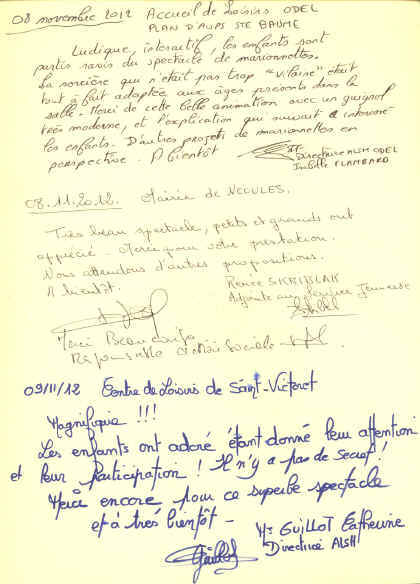 08 novembre 2012 Accueil de Loisirs ODEL
PLAN D'AUPS STE BAUME
Ludique, interactif, les enfants sont
partis ravis du spectacle de marionnettes.
La sorcière qui n'était pas trop "vilaine" était
tout à fait adaptée aux âges présents dans la
salle. Merci de cette belle animation avec un guignol
très moderne, et l'explication qui suivait a intéressé
les enfants. D'autres projets de marionnettes en
perspective. A bientôt
Directrice ALSH ODEL
Isabelle FLAMBARD
08.11.2012. Mairie de NEOULES.
Très beau spectacle, petits et grands ont
apprécié. Merci pour votre prestation.
Nous attendons d'autres propositions.
A bientôt.
Renée SKRIBLAK
Adjointe aux Jeunesse
Merci Beaucoup
Responsable Sociale
09/11/12 Centre de Loisirs de Saint-Victoret
Magnifique !!!
Les enfants ont adoré étant donné leur attention
et leur participation ! Il n'y a pas de secret !
Merci encore pour ce superbe spectacle
et à très bientôt -
GUILLOT Catherine
Directrice ALSH